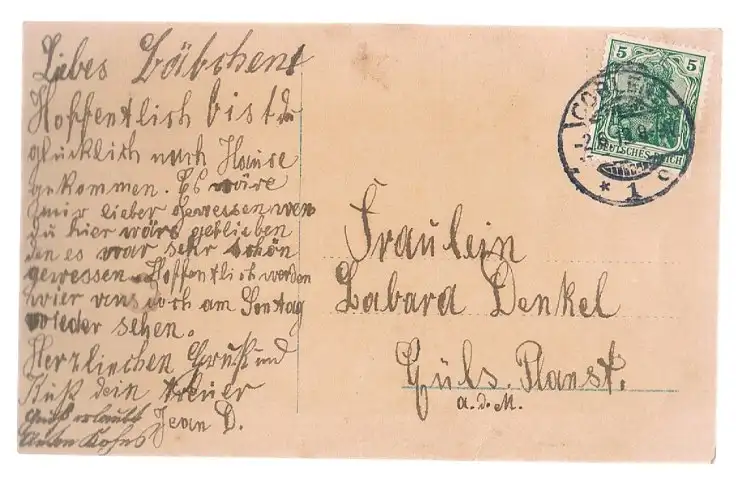 Liebes Bäbchen!
Hoffentlich bist du
glücklich nach Hause
gekommen. Es wäre
mir lieber gewessen wen
du hier wärs geblieben
den es war sehr schön
gewessen. Hoffentlich werden
wier uns doch am Sontag
wieder sehen.
Herzlinchen Gruß und
Kuß dein treuer
Jean D.
Gruß erlaubt
Anton Kohns
5 5
DEUTSCHES REICH
COBLENZ
* 1 c
Fräulein
Babara Denkel
Güls. Planst.
a. d. M.